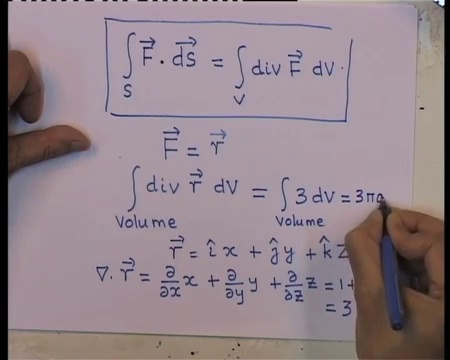 ∫_S F⃗ · ds⃗ = ∫_V div F⃗ dV.
F⃗ = r⃗
∫_volume div r⃗ dV = ∫_volume 3 dV = 3π
r⃗ = î x + ĵ y + k̂ z
∇ · r⃗ = ∂/∂x x + ∂/∂y y + ∂/∂z z = 1 +
= 3